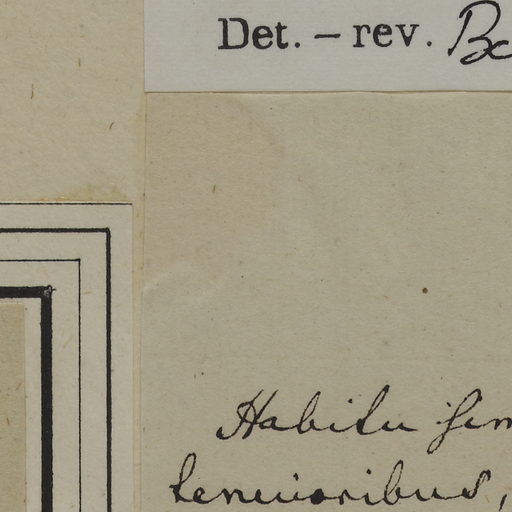 Det. – rev.
Habitu
tenuioribus,